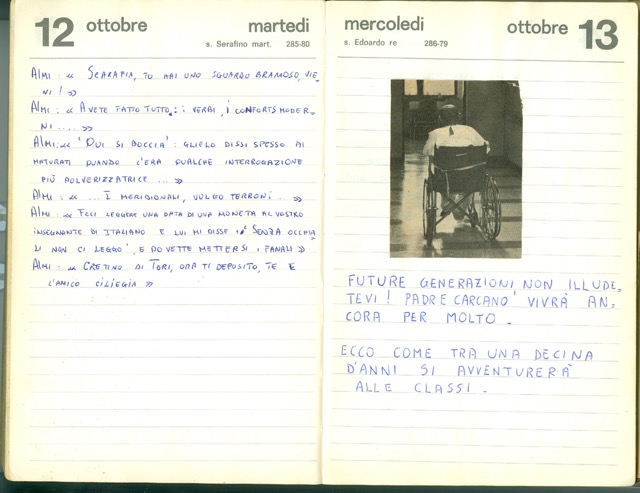 12 ottobre martedì
s. Serafino mart. 285-80
ALMI: « SCARAFIA, TU HAI UNO SGUARDO BRAMOSO, VIE-
NI! »
ALMI: « AVETE FATTO TUTTO: I VERBI, I CONFORTS MODER-
NI .... »
ALMI: « 'QUI SI BOCCIA': GLIELO DISSI SPESSO AI
MATURATI QUANDO C'ERA QUALCHE INTERROGAZIONE
PIÙ POLVERIZZATRICE ... »
ALMI: « ... I MERIDIONALI, VULGO TERRONI ... »
ALMI: « FECI LEGGERE UNA DATA DI UNA MONETA AL VOSTRO
INSEGNANTE DI ITALIANO E LUI MI DISSE: 'SENZA OCCHIA
LI NON CI LEGGO', E DOVETTE METTERSI I FANALI »
ALMI: « CRETINO DI TORI, ORA TI DEPOSITO, TE E
L'AMICO CILIEGIA »
mercoledì ottobre 13
s. Edoardo re 286-79
FUTURE GENERAZIONI NON ILLUDE-
TEVI! PADRE CARCANO VIVRÀ AN-
CORA PER MOLTO.
ECCO COME TRA UNA DECINA
D'ANNI SI AVVENTURERÀ
ALLE CLASSI.